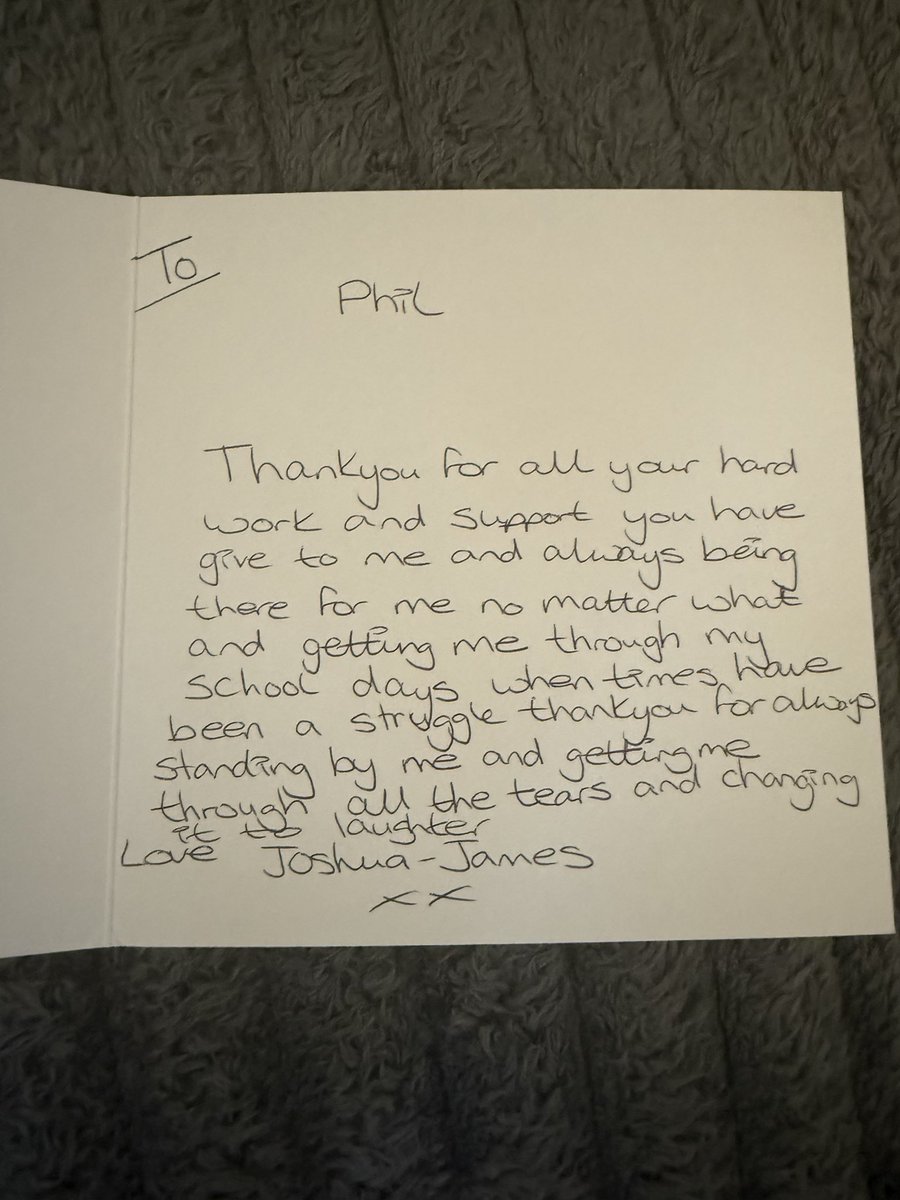 To
Phil
Thankyou for all your hard
work and support you have
give to me and always being
there for me no matter what
and getting me through my
school days when times have
been a struggle thankyou for always
standing by me and getting me
through all the tears and changing
it to laughter
Love Joshua-James
xx